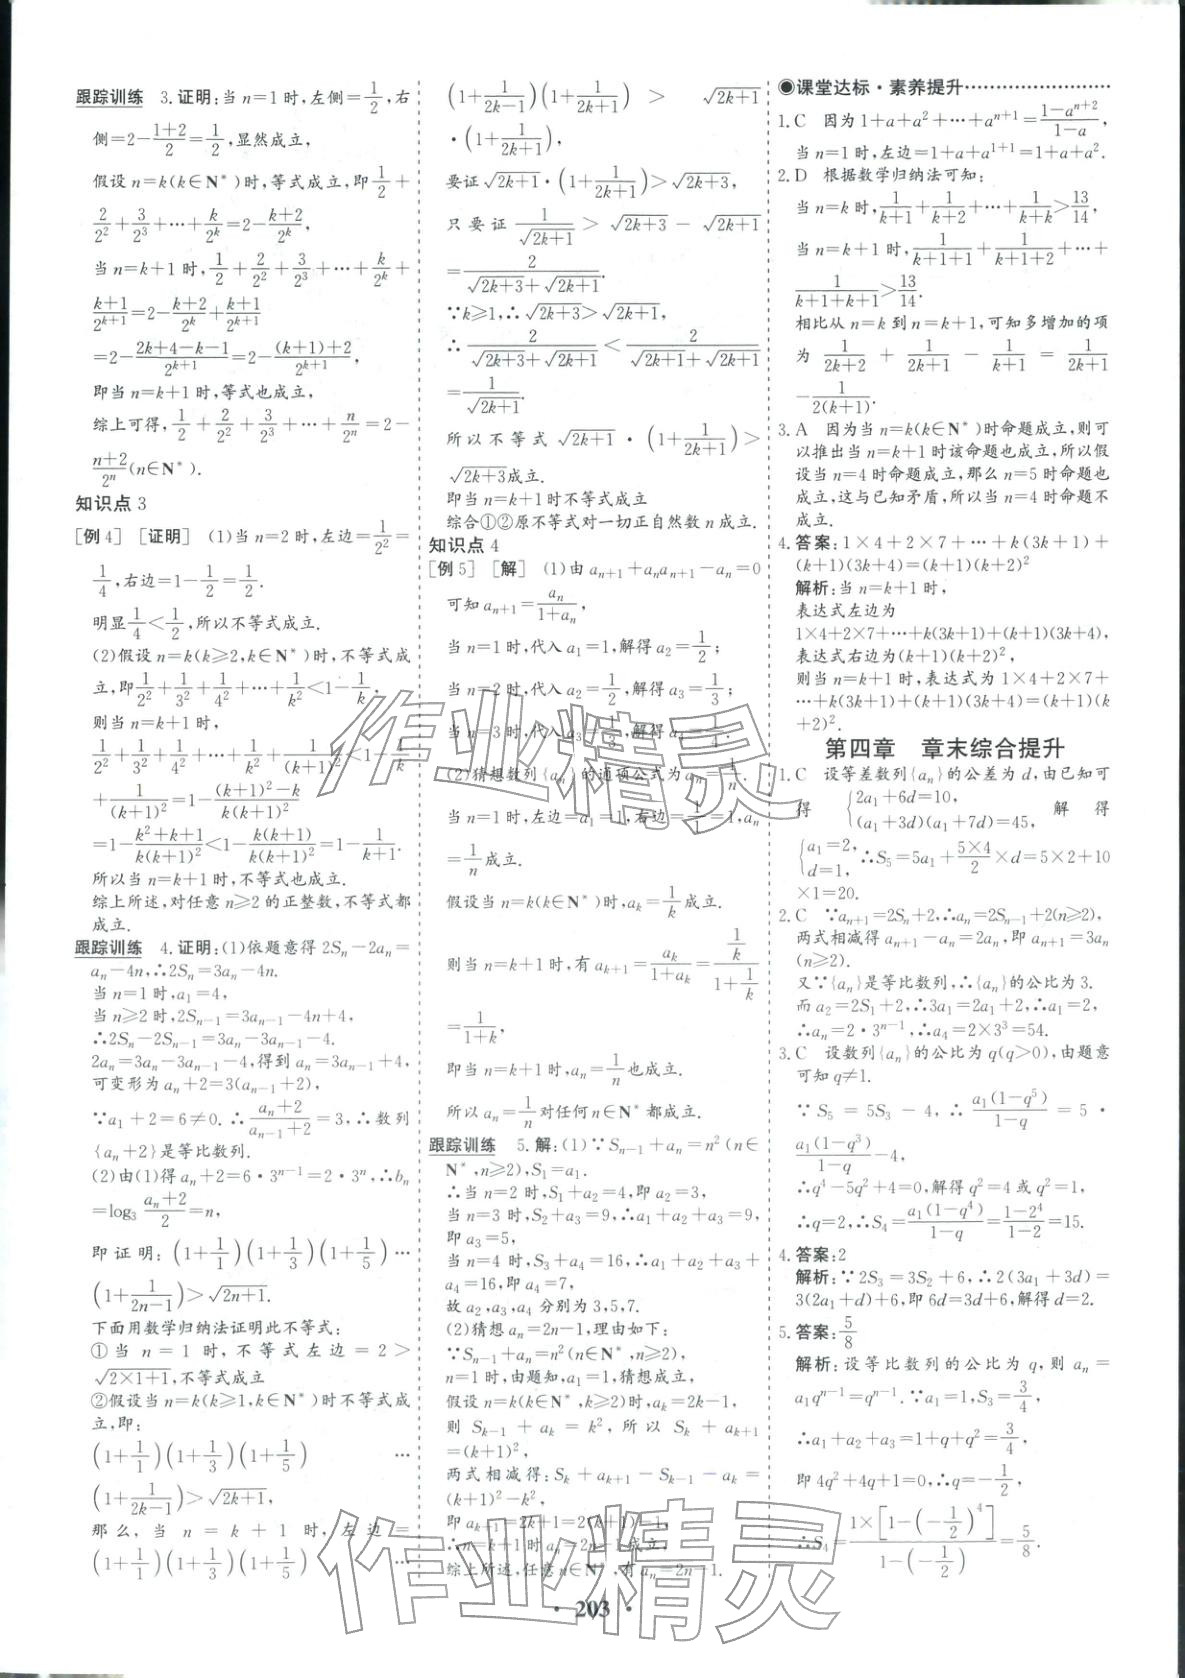 跟踪训练 3.证明:当 n=1 时,左侧=1/2,右
侧=2-(1+2)/2=1/2,显然成立,
假设 n=k(k∈N*)时,等式成立,即1/2+
2/2²+3/2³+…+k/2^k=2-(k+2)/2^k,
当 n=k+1 时,1/2+2/2²+3/2³+…+k/2^k+
(k+1)/2^(k+1)=2-(k+2)/2^k+(k+1)/2^(k+1)
=2-(2k+4-k-1)/2^(k+1)=2-((k+1)+2)/2^(k+1),
即当 n=k+1 时,等式也成立,
综上可得,1/2+2/2²+3/2³+…+n/2^n=2-
(n+2)/2^n(n∈N*).
知识点 3
[例 4] [证明] (1)当 n=2 时,左边=1/2²=
1/4,右边=1-1/2=1/2.
明显1/4<1/2,所以不等式成立.
(2)假设 n=k(k≥2,k∈N*)时,不等式成
立,即1/2²+1/3²+1/4²+…+1/k²<1-1/k,
则当 n=k+1 时,
1/2²+1/3²+1/4²+…+1/k²+1/(k+1)²<1-1/k
+1/(k+1)²=1-((k+1)²-k)/(k(k+1)²)
=1-(k²+k+1)/(k(k+1)²)<1-(k(k+1))/(k(k+1)²)=1-1/(k+1).
所以当 n=k+1 时,不等式也成立.
综上所述,对任意 n≥2 的正整数,不等式都
成立.
跟踪训练 4.证明:(1)依题意得 2Sₙ-2aₙ=
aₙ-4n,∴2Sₙ=3aₙ-4n.
当 n=1 时,a₁=4,
当 n≥2 时,2Sₙ₋₁=3aₙ₋₁-4n+4,
∴2Sₙ-2Sₙ₋₁=3aₙ-3aₙ₋₁-4.
2aₙ=3aₙ-3aₙ₋₁-4,得到 aₙ=3aₙ₋₁+4,
可变形为 aₙ+2=3(aₙ₋₁+2),
∵a₁+2=6≠0.∴(aₙ+2)/(aₙ₋₁+2)=3,∴数列
{aₙ+2}是等比数列.
(2)由(1)得 aₙ+2=6·3^(n-1)=2·3^n,∴bₙ
=log₃((aₙ+2)/2)=n,
即证明:(1+1/1)(1+1/3)(1+1/5)…
(1+1/(2n-1))>√(2n+1).
下面用数学归纳法证明此不等式:
①当 n=1 时,不等式左边=2>
√(2×1+1),不等式成立
②假设当 n=k(k≥1,k∈N*)时不等式成
立,即:
(1+1/1)(1+1/3)(1+1/5) …
(1+1/(2k-1))>√(2k+1),
那么,当 n=k+1 时,左边=
(1+1/1)(1+1/3)(1+1/5) …
(1+1/(2k-1))(1+1/(2k+1)) > √(2k+1)
·(1+1/(2k+1)),
要证√(2k+1)·(1+1/(2k+1))>√(2k+3),
只要证 1/√(2k+1) > √(2k+3) - √(2k+1)
=2/(√(2k+3)+√(2k+1)).
∵k≥1,∴√(2k+3)>√(2k+1),
∴2/(√(2k+3)+√(2k+1))<2/(√(2k+1)+√(2k+1))
=1/√(2k+1).
所以不等式 √(2k+1)·(1+1/(2k+1))>
√(2k+3)成立.
即当 n=k+1 时不等式成立
综合①②原不等式对一切正自然数 n 成立.
知识点 4
[例 5] [解] (1)由 aₙ₊₁+aₙaₙ₊₁-aₙ=0
可知 aₙ₊₁=aₙ/(1+aₙ),
当 n=1 时,代入 a₁=1,解得 a₂=1/2;
当 n=2 时,代入 a₂=1/2,解得 a₃=1/3;
当 n=3 时,代入 a₃=1/3,解得 a₄=1/4.
(2)猜想数列{aₙ}的通项公式为 aₙ=1/n.
当 n=1 时,左边=a₁=1,右边=1/1=1,aₙ
=1/n成立.
假设当 n=k(k∈N*)时,aₖ=1/k成立.
则当 n=k+1 时,有 aₖ₊₁=aₖ/(1+aₖ)=(1/k)/(1+1/k)
=1/(1+k),
即当 n=k+1 时,aₙ=1/n也成立.
所以 aₙ=1/n对任何 n∈N*都成立.
跟踪训练 5.解:(1)∵Sₙ₋₁+aₙ=n²(n∈
N*,n≥2),S₁=a₁.
∴当 n=2 时,S₁+a₂=4,即 a₂=3,
当 n=3 时,S₂+a₃=9,∴a₁+a₂+a₃=9,
即 a₃=5,
当 n=4 时,S₃+a₄=16,∴a₁+a₂+a₃+
a₄=16,即 a₄=7,
故 a₂,a₃,a₄ 分别为 3,5,7.
(2)猜想 aₙ=2n-1,理由如下:
∵Sₙ₋₁+aₙ=n²(n∈N*,n≥2).
n=1 时,由题知,a₁=1,猜想成立,
假设 n=k(k∈N*,k≥2)时,aₖ=2k-1,
则 Sₖ₋₁+aₖ=k²,所以 Sₖ+aₖ₊₁
=(k+1)²,
两式相减得:Sₖ+aₖ₊₁-Sₖ₋₁-aₖ=
(k+1)²-k²,
即 aₖ₊₁=2k+1=2(k+1)-1,
∴n=k+1 时 aₙ=2n-1 成立,
综上所述,任意 n∈N*,有 aₙ=2n-1.
◉课堂达标·素养提升
1.C 因为 1+a+a²+…+a^(n+1)=(1-a^(n+2))/(1-a),
当 n=1 时,左边=1+a+a^(1+1)=1+a+a².
2.D 根据数学归纳法可知:
当 n=k 时,1/(k+1)+1/(k+2)+…+1/(k+k)>13/14,
当 n=k+1 时,1/(k+1+1)+1/(k+1+2)+…+
1/(k+1+k+1)>13/14.
相比从 n=k 到 n=k+1,可知多增加的项
为 1/(2k+2) + 1/(2k+1) - 1/(k+1) = 1/(2k+1)
-1/(2(k+1)).
3.A 因为当 n=k(k∈N*)时命题成立,则可
以推出当 n=k+1 时该命题也成立,所以假
设当 n=4 时命题成立,那么 n=5 时命题也
成立,这与已知矛盾,所以当 n=4 时命题不
成立.
4.答案:1×4+2×7+…+k(3k+1)+
(k+1)(3k+4)=(k+1)(k+2)²
解析:当 n=k+1 时,
表达式左边为
1×4+2×7+…+k(3k+1)+(k+1)(3k+4),
表达式右边为(k+1)(k+2)²,
则当 n=k+1 时,表达式为 1×4+2×7+
…+k(3k+1)+(k+1)(3k+4)=(k+1)(k
+2)².
第四章 章末综合提升
1.C 设等差数列{aₙ}的公差为 d,由已知可
得 {2a₁+6d=10, (a₁+3d)(a₁+7d)=45, 解得
{a₁=2, d=1, ∴S₅=5a₁+(5×4)/2×d=5×2+10
×1=20.
2.C ∵aₙ₊₁=2Sₙ+2,∴aₙ=2Sₙ₋₁+2(n≥2),
两式相减得 aₙ₊₁-aₙ=2aₙ,即 aₙ₊₁=3aₙ
(n≥2).
又∵{aₙ}是等比数列,∴{aₙ}的公比为 3.
而 a₂=2S₁+2,∴3a₁=2a₁+2,∴a₁=2,
∴aₙ=2·3^(n-1),∴a₄=2×3³=54.
3.C 设数列{aₙ}的公比为 q(q>0),由题意
可知 q≠1.
∵S₅=5S₃-4,∴a₁(1-q⁵)/(1-q)=5·
a₁(1-q³)/(1-q)-4,
∴q⁴-5q²+4=0,解得 q²=4 或 q²=1,
∴q=2,∴S₄=a₁(1-q⁴)/(1-q)=(1-2⁴)/(1-2)=15.
4.答案:2
解析:∵2S₃=3S₂+6,∴2(3a₁+3d)=
3(2a₁+d)+6,即 6d=3d+6,解得 d=2.
5.答案:5/8
解析:设等比数列的公比为 q,则 aₙ=
a₁q^(n-1)=q^(n-1).∵a₁=1,S₃=3/4,
∴a₁+a₂+a₃=1+q+q²=3/4,
即 4q²+4q+1=0,∴q=-1/2,
∴S₄=1×[1-(-1/2)⁴]/(1-(-1/2))=5/8.
·203·
作业精灵
作业精灵